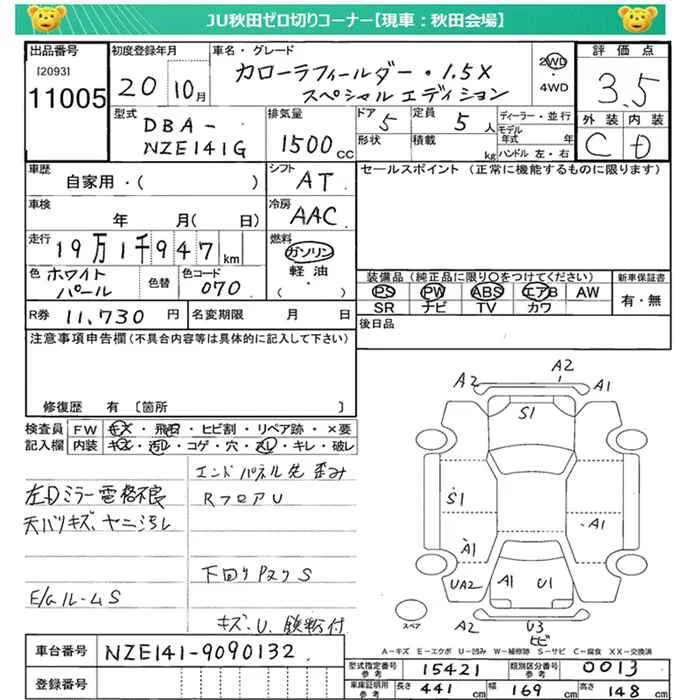 JU秋田ゼロ切りコーナー【現車：秋田会場】
出品番号
[2093]
11005
初度登録年月
20 10月
車名・グレード
カローラフィールダー・1.5X
スペシャルエディション
2WD
4WD
評価点
3.5
外装 内装
C D
型式
DBA-
NZE141G
排気量
1500cc
ドア
5
形状
定員
5人
積載
kg
ディーラー・並行
モデル年式 年
ハンドル 左・右
車歴
自家用・( )
シフト
AT
セールスポイント (正常に機能するものに限ります)
車検
年 月( 日)
冷房
AAC
走行
19万1千947km
燃料
ガソリン
軽油
( ・ )
色 ホワイトパール
色替
色コード
070
装備品 (純正品に限り○をつけてください)
PS PW ABS エアB AW
SR ナビ TV カワ
新車保証書
有・無
R券 11,730円
名変期限 月 日
後日品
注意事項申告欄(不具合内容等は具体的に記入して下さい)
修復歴 有 〔箇所 〕
検査員記入欄
FW キズ・飛石・ヒビ割・リペア跡・×要
内装 キズ・汚レ・コゲ・穴・スレ・キレ・破レ
エンドパネル先歪み
左Dミラー電格不良
RフロアU
天バリキズ、ヤニ汚レ
下回りPスクS
E/GルームS
キズ、U、鉄粉付
A2
A2
A1
S1
S1
A1
A1
UA2
A1
U1
A2
U3
ヒビ
スペア
A-キズ E-エクボ U-凹み W-補修跡 S-サビ C-腐食 XX-交換済
車台番号
NZE141-9090132
登録番号
型式指定番号
15421
類別区分番号
0013
車庫証明用参考
長さ 441cm
幅 169cm
高さ 148cm